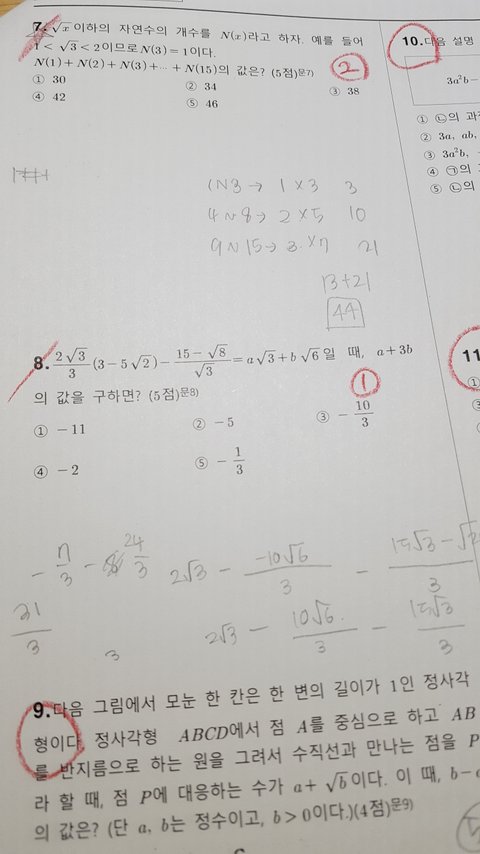 7. √x 이하의 자연수의 개수를 N(x)라고 하자. 예를 들어
1 < √3 < 2이므로 N(3) = 1이다.
N(1) + N(2) + N(3) + ⋯ + N(15)의 값은? (5점)문7)
②
① 30 ② 34 ③ 38
④ 42 ⑤ 46
1N3 → 1×3 3
4N8 → 2×5 10
9N15 → 3×7 21
13+21
44
8. 2√3/3 (3 - 5√2) - (15 - √8)/√3 = a√3 + b√6 일 때, a + 3b
의 값을 구하면? (5점)문8)
①
① -11 ② -5 ③ -10/3
④ -2 ⑤ -1/3
24/3 2√3 - -10√6/3 - 15√3 -
31/3 3 2√3 - 10√6/3 - 15√3/3
9. 다음 그림에서 모눈 한 칸은 한 변의 길이가 1인 정사각
형이다. 정사각형 ABCD에서 점 A를 중심으로 하고 AB
를 반지름으로 하는 원을 그려서 수직선과 만나는 점을 P
라 할 때, 점 P에 대응하는 수가 a + √b이다. 이 때, b -
의 값은? (단 a, b는 정수이고, b > 0이다.)(4점)문9)
10. 다음 설명
3a²b -
① ㉡의 과
② 3a, ab,
③ 3a²b,
④ ㉠의
⑤ ㉡의
11
①